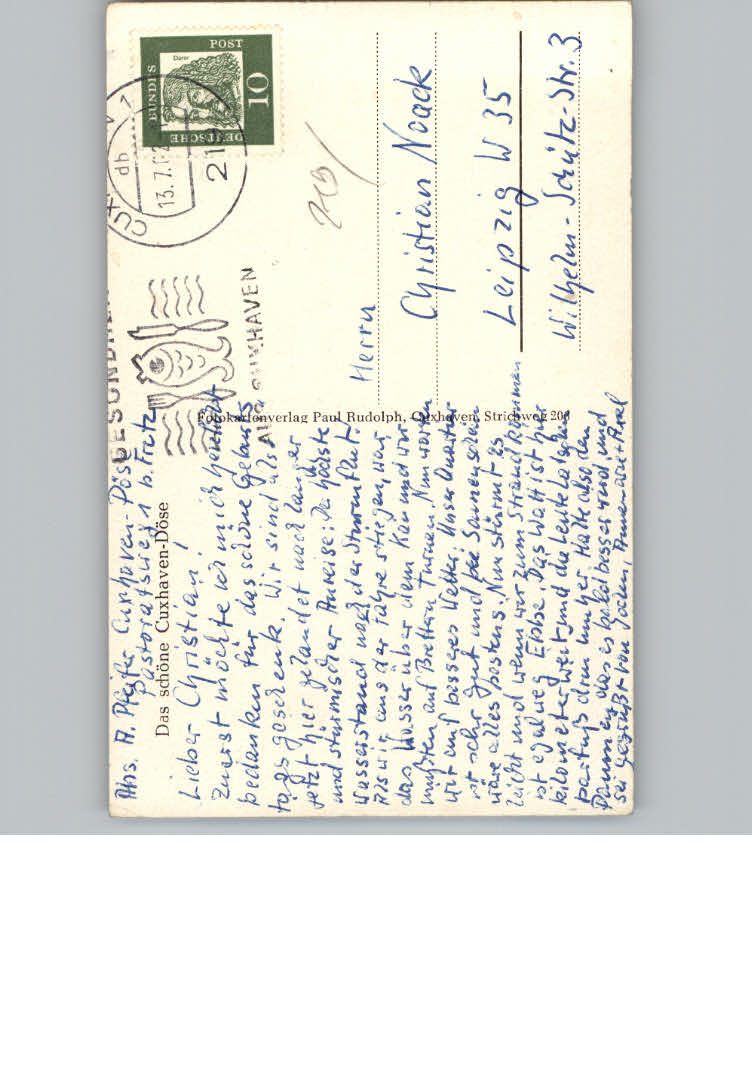 Abs. A. Pfeifer Cuxhaven-Döse
Pastoratsstieg 1 b. Fritz
Das schöne Cuxhaven-Döse
Lieber Christian!
Zuerst möchte ich mich herzlichst
bedanken für das schöne Geburts
tagsgeschenk. Wir sind also
jetzt hier gelandet nach langer
und stürmischer Anreise: Der höchste
Wasserstand nach der Sturmflut!
Als wir aus der Fähre stiegen, war
das Wasser über dem Kai und wir
mußten auf Brettern turnen. Nun warten
wir auf besseres Wetter. Unser Quartier
ist sehr gut und bei Sonnenschein
wäre alles bestens. Nun stürmt es
leicht und wenn wir zum Strand kommen
ist egalweg Ebbe. Das Watt ist hier
kilometerweit und die Leute latschen
barfuß drin umher. Halte also den
Daumen, daß es bald besser wird und
sei gegrüßt von Jochen, Annemarie + Axel
Fotokartenverlag Paul Rudolph, Cuxhaven, Strichweg 208
DEUTSCHE
BUNDES
POST
10
Dürer
CUX
db
13.7.62
21
GESUNDHEIT
AUS CUXHAVEN
Herrn
Christian Noack
Leipzig W 35
Wilhelm-Schütz-Str. 3